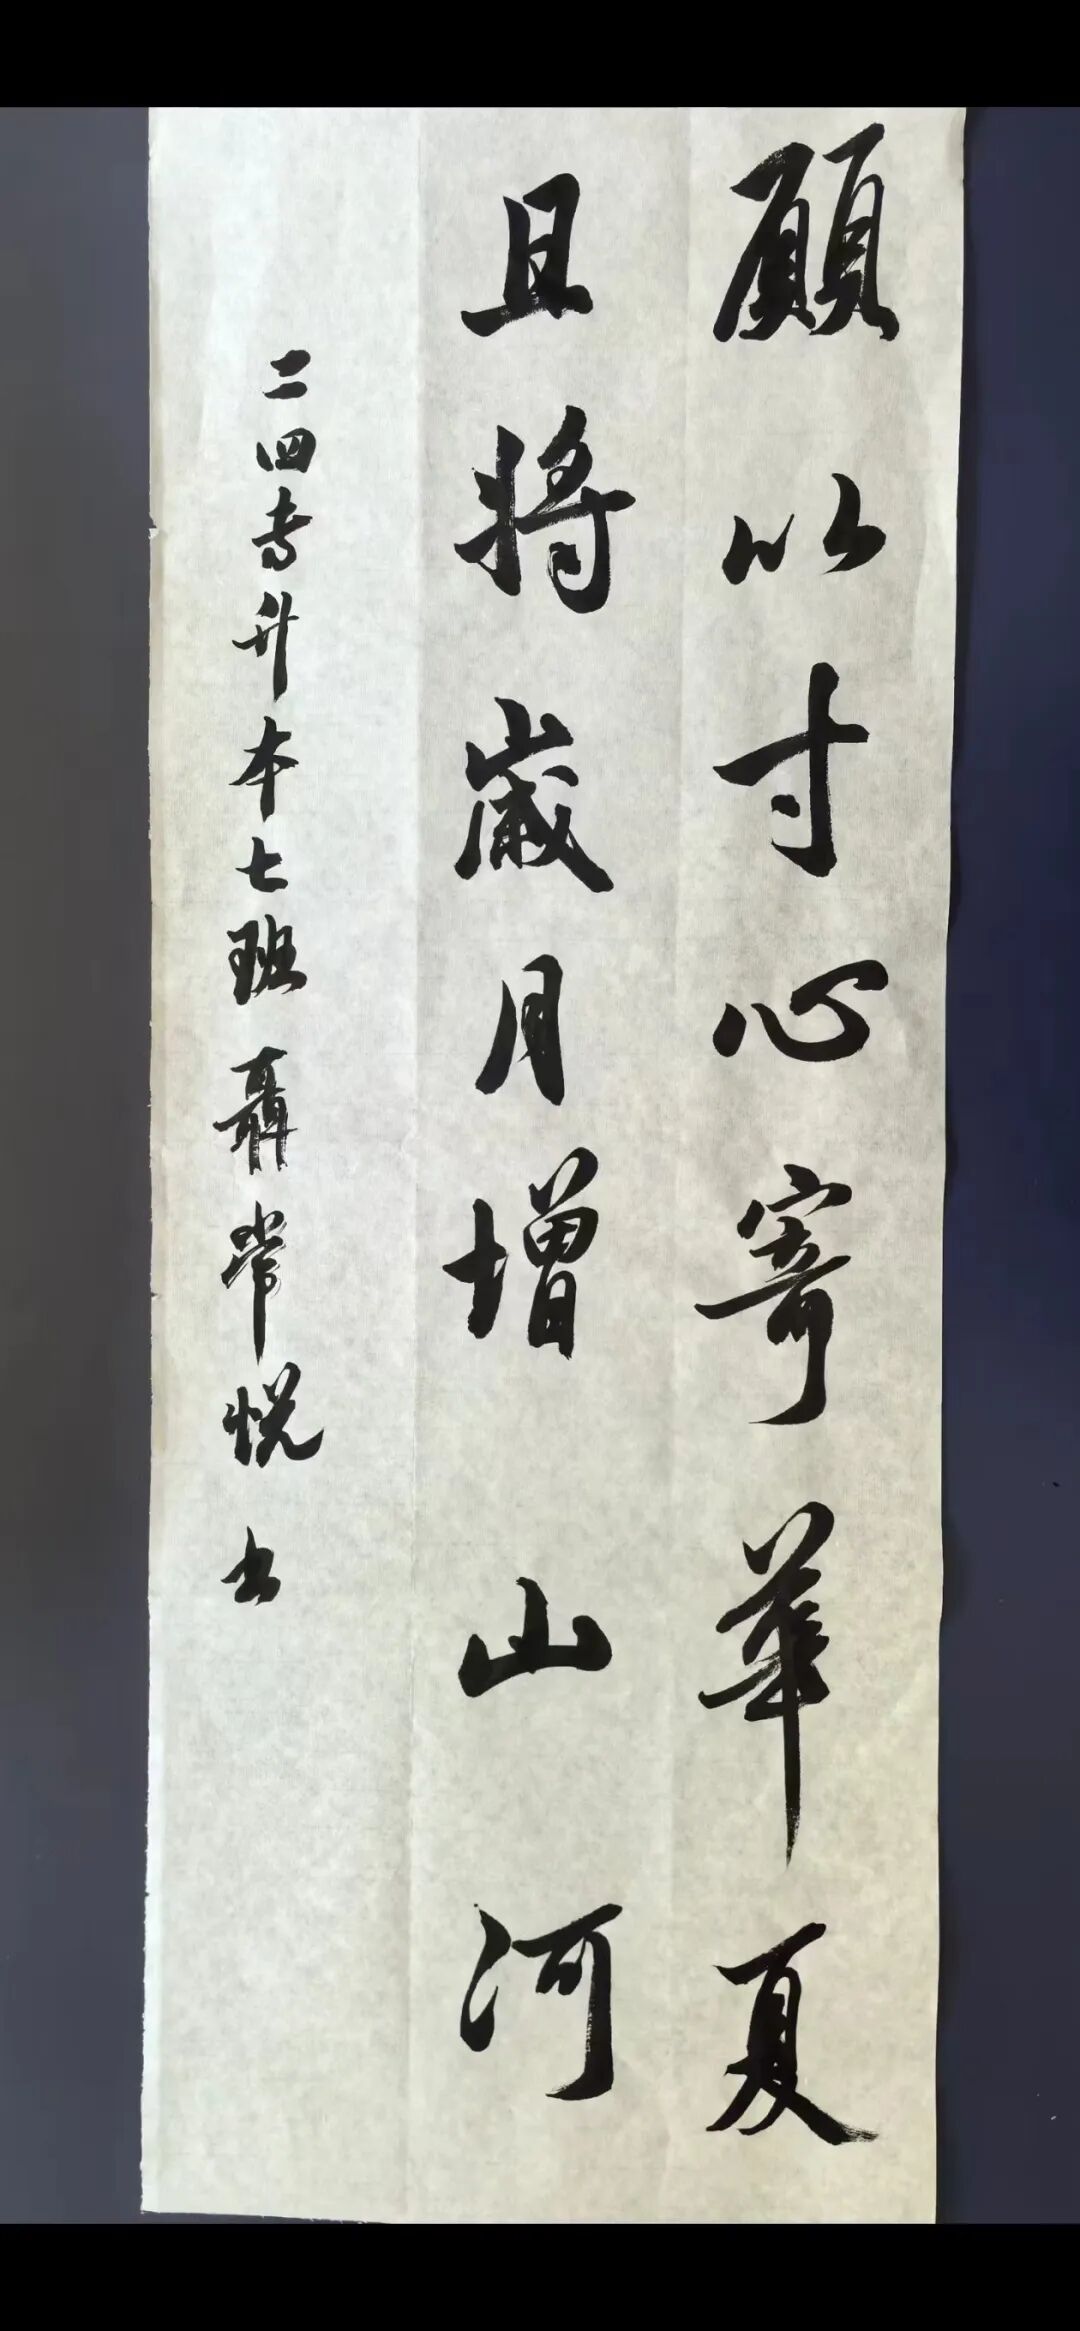 願以寸心寄華夏
且將歲月增山河
二四专升本七班聶常悦书